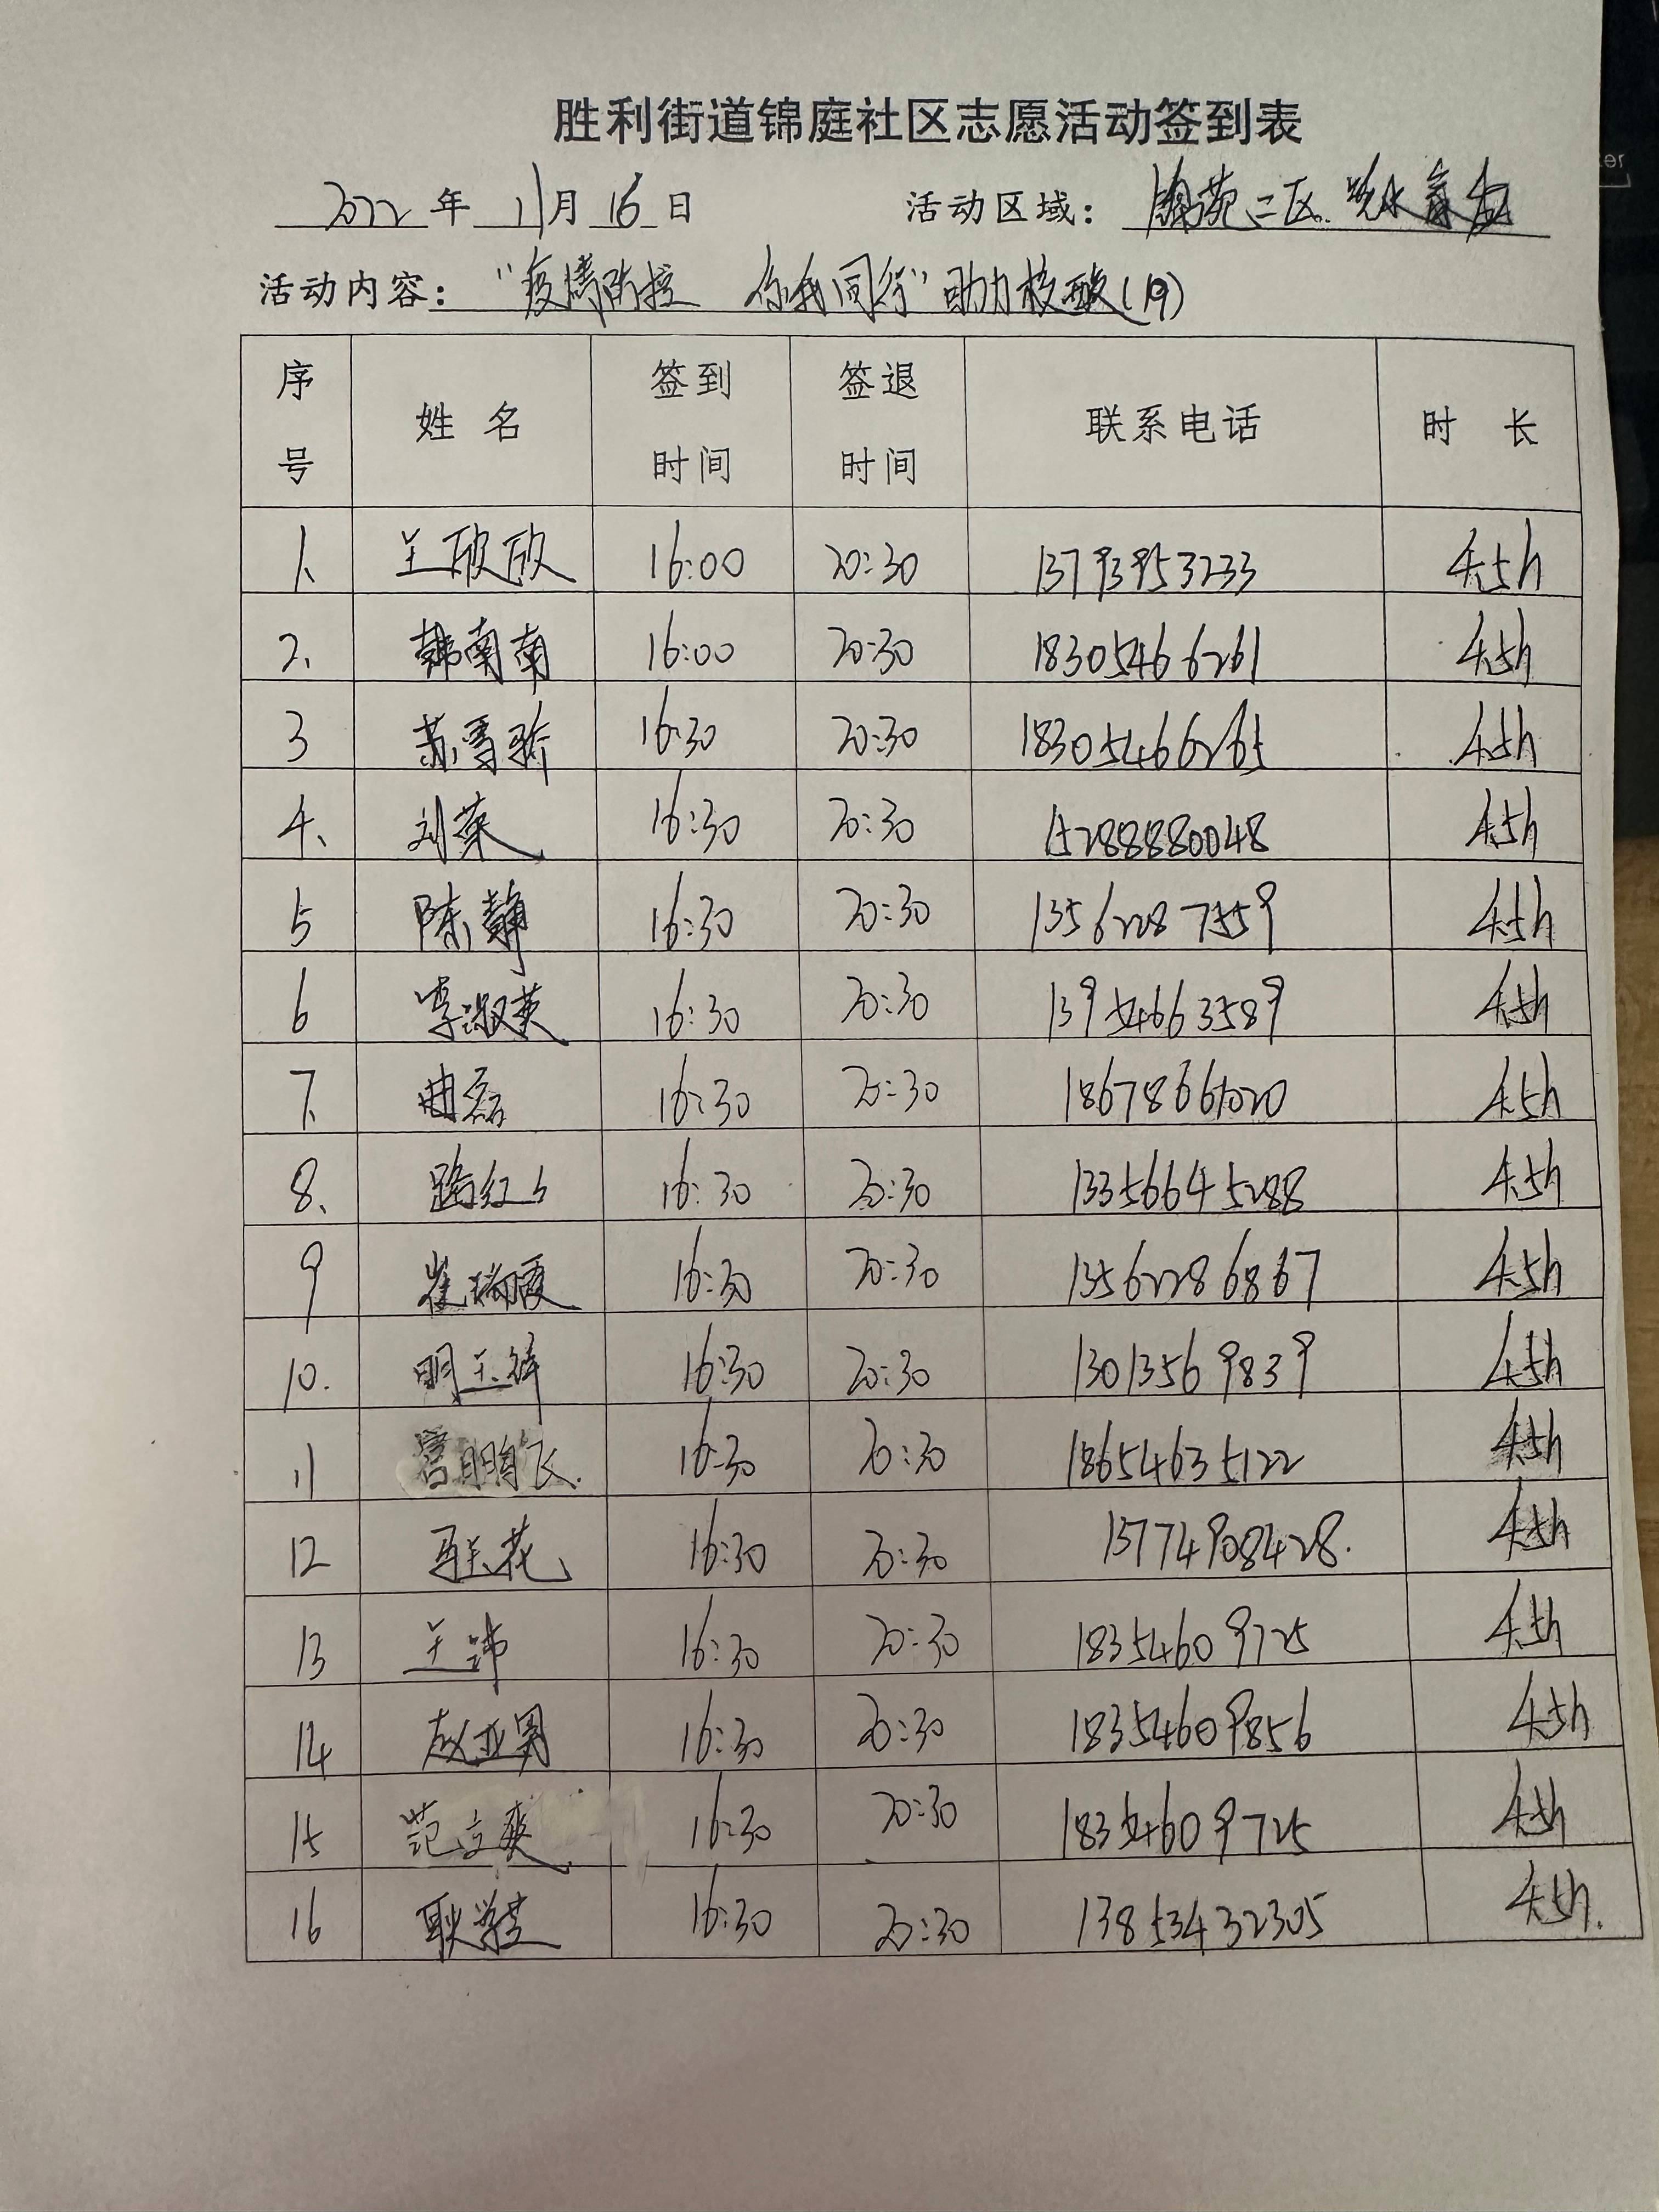 胜利街道锦庭社区志愿活动签到表
2022年 11月 16日 活动区域: 锦苑二区
活动内容: "疫情防控 你我同行"助力核酸(19)
序号 姓名 签到时间 签退时间 联系电话 时长
1、 王欣欣 16:00 20:30 13793953233 4.5h
2、 韩南南 16:00 20:30 18305466261 4.5h
3 苏雪娇 16:30 20:30 18305466265 4.5h
4、 刘荣 16:30 20:30 15288880048 4.5h
5 陈静 16:30 20:30 13562287559 4.5h
6 李淑英 16:30 20:30 13954663589 4.5h
7、 曲磊 16:30 20:30 18678661020 4.5h
8、 路红 16:30 20:30 13356645288 4.5h
9 崔瑞霞 16:30 20:30 13562286867 4.5h
10. 明玉祥 16:30 20:30 13013569839 4.5h
11 鹏飞. 16:30 20:30 18654635122 4.5h
12 花 16:30 20:30 13774908428. 4.5h
13 王 16:30 20:30 18354609725 4.5h
14 赵亚男 16:30 20:30 18354609856 4.5h
15 范立爽 16:30 20:30 18354609725 4.5h
16 耿 16:30 20:30 13853432305 4.5h.